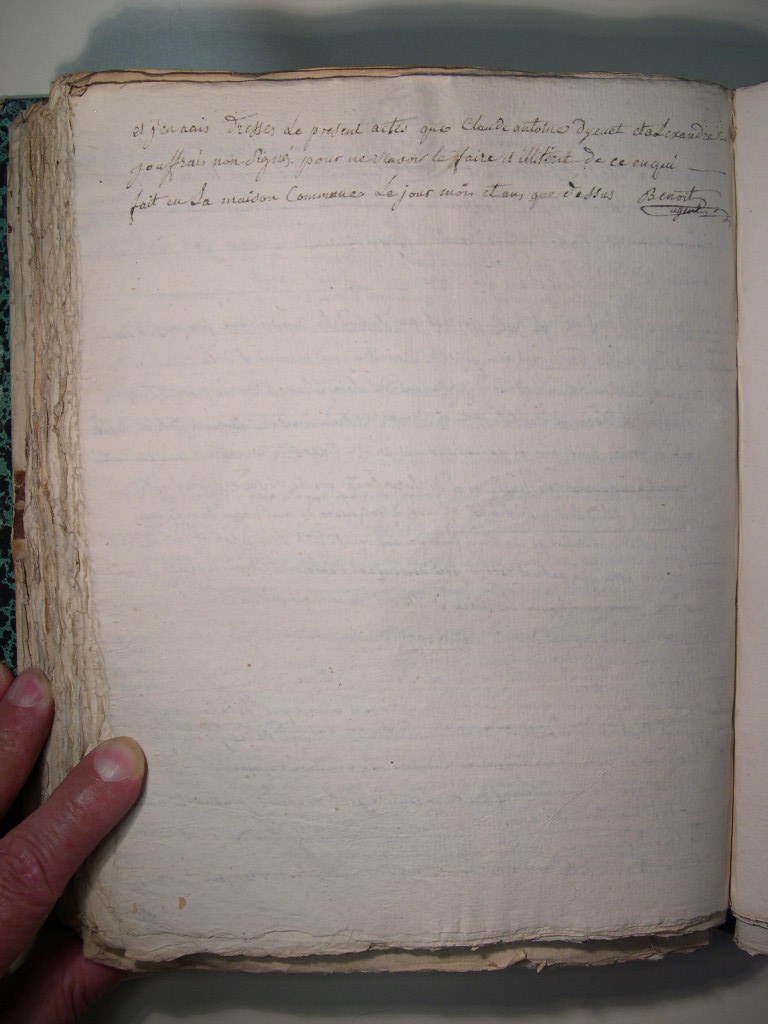 et j'en nais dresses Le present actes que Claude antoine Dyeuet et alexandre
jouffrais non Signés pour ne savoir le faire et illiteré de ce enqui
fait en La maison Commune Le jour mois et ans que dessus Benoit
agent